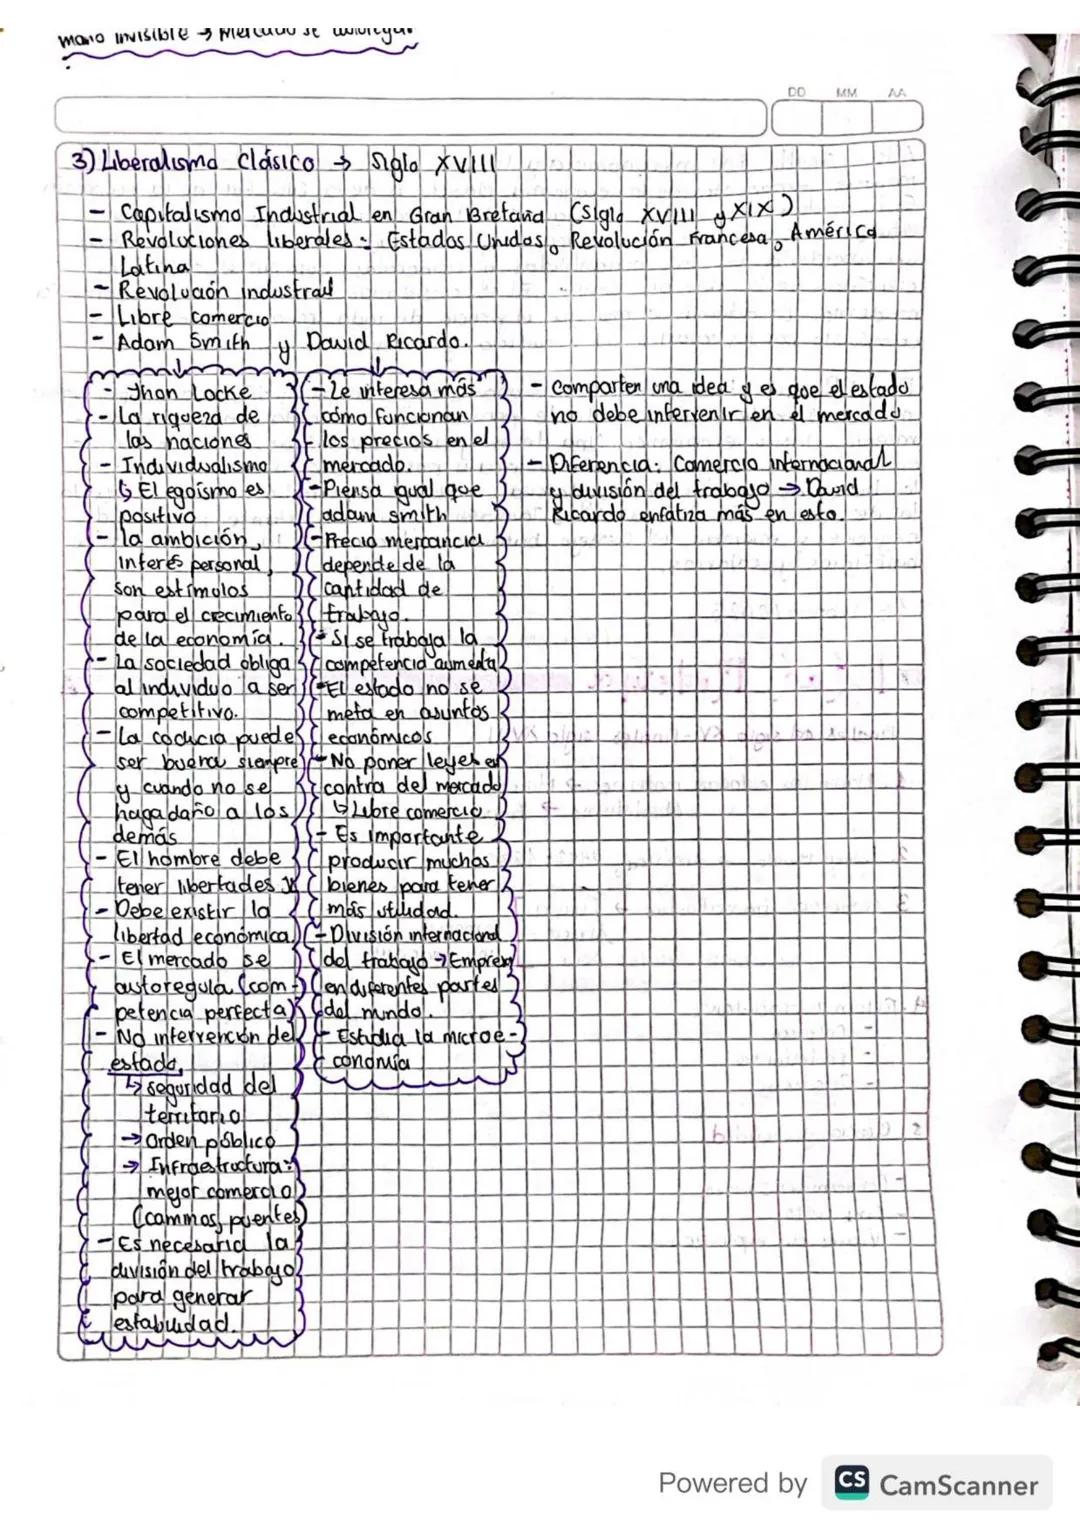 mano invisible → Mercado se autoregula
DD MM AA
3) Liberalismo Clásico → Siglo XVIII
- Capitalismo Industrial en Gran Bretaña (Siglo XVIII y XIX)
- Revoluciones liberales: Estados Unidos, Revolución Francesa, América
Latina
- Revolución industrial
- Libre comercio
- Adam Smith y David Ricardo.
- Jhon Locke
- La riqueza de
las naciones
- Individualismo
↳ El egoísmo es
positivo
- la ambición,
interés personal,
son estímulos
para el crecimiento
de la economía.
- La sociedad obliga
al individuo a ser
competitivo.
- La codicia puede
ser buena siempre
y cuando no se
haga daño a los
demás
- El hombre debe
tener libertades
- Debe existir la
libertad económica
- El mercado se
autoregula (com-
petencia perfecta)
- No intervención del
estado,
↳ seguridad del
territorio
→ Orden público
→ Infraestructura:
mejor comercio
(caminos, puentes)
- Es necesaria la
división del trabajo
para generar
estabilidad.
- Le interesa más
cómo funcionan
los precios en el
mercado.
- Piensa igual que
adam smith
- Precio mercancia
depende de la
cantidad de
trabajo.
- Si se trabaja la
competencia aumenta
- El estado no se
meta en asuntos
económicos
- No poner leyes en
contra del mercado
↳ Libre comercio
- Es importante
producir muchos
bienes para tener
más utilidad.
- División internacional
del trabajo → Empresas
en diferentes partes
del mundo.
- Estudia la microe-
conomía
- Comparten una idea y es que el estado
no debe intervenir en el mercado
- Diferencia: Comercio internacional
y división del trabajo → David
Ricardo enfatiza más en esto.
Powered by CS CamScanner